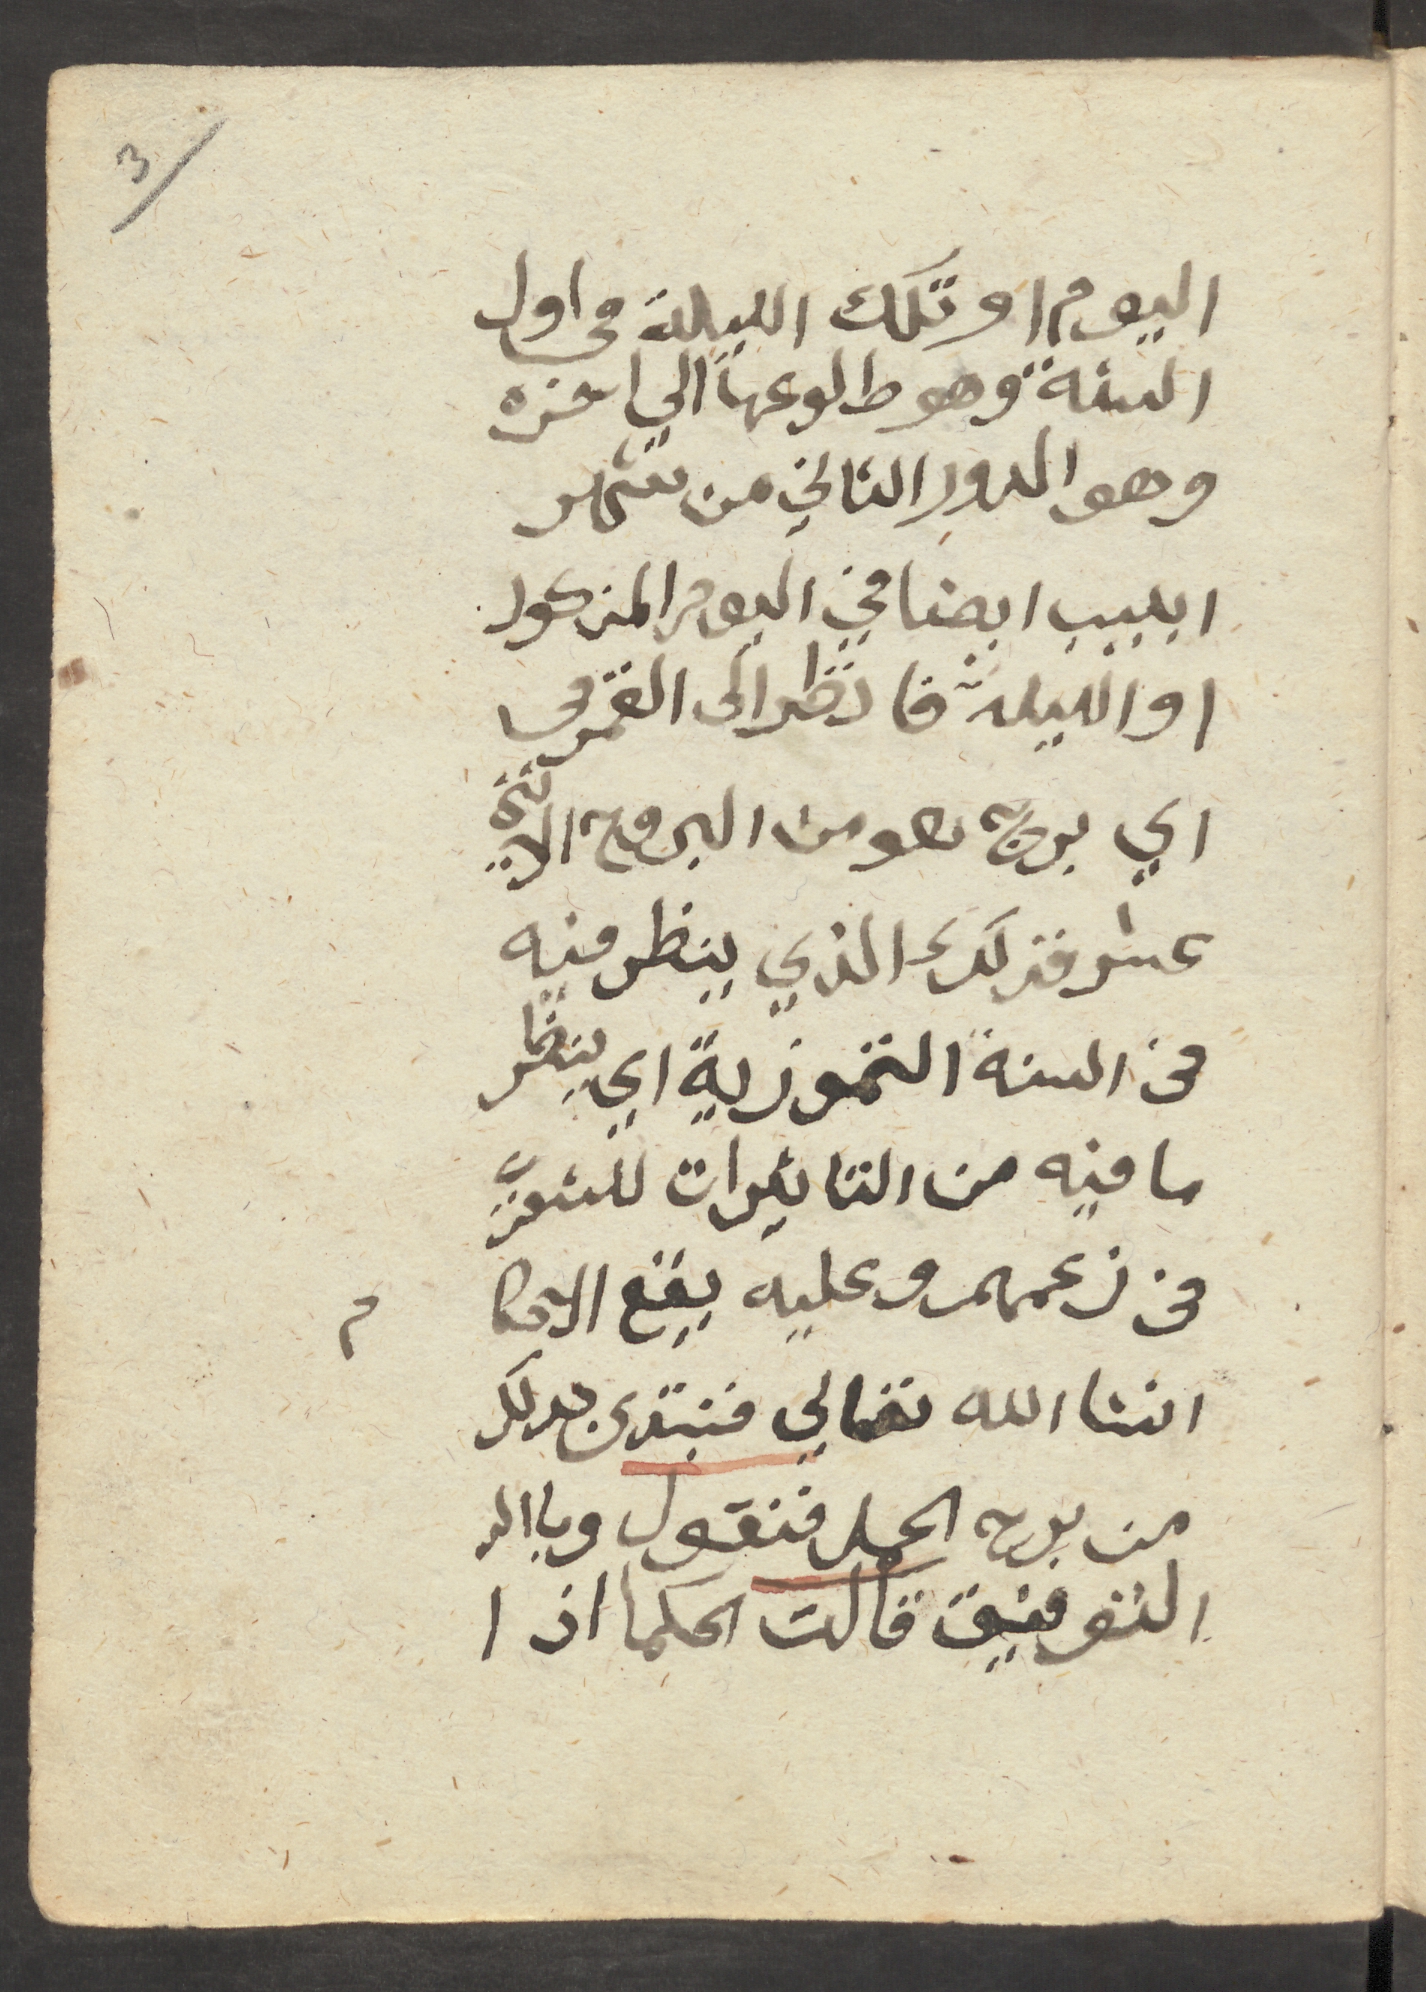 3
اليوم او تلك الليلة في اول
السنة وهو طلوعها الي اخره
وهو الدور الثاني من شهر
ابيب ايضا في اليوم المذكور
او الليلة فانظر الى القمر في
اي برج هو من البروج الاثني
عشر فذلك الذي ينظر فيه
في السنة التموزية اي ينظر
ما فيه من التاثيرات للشعري
في زعمهم وعليه يقع الاحكا م
انشا الله تعالي فنبتدي بذلك
من برج الحمل فنقول وبالله
التوفيق قالت الحكما اذا